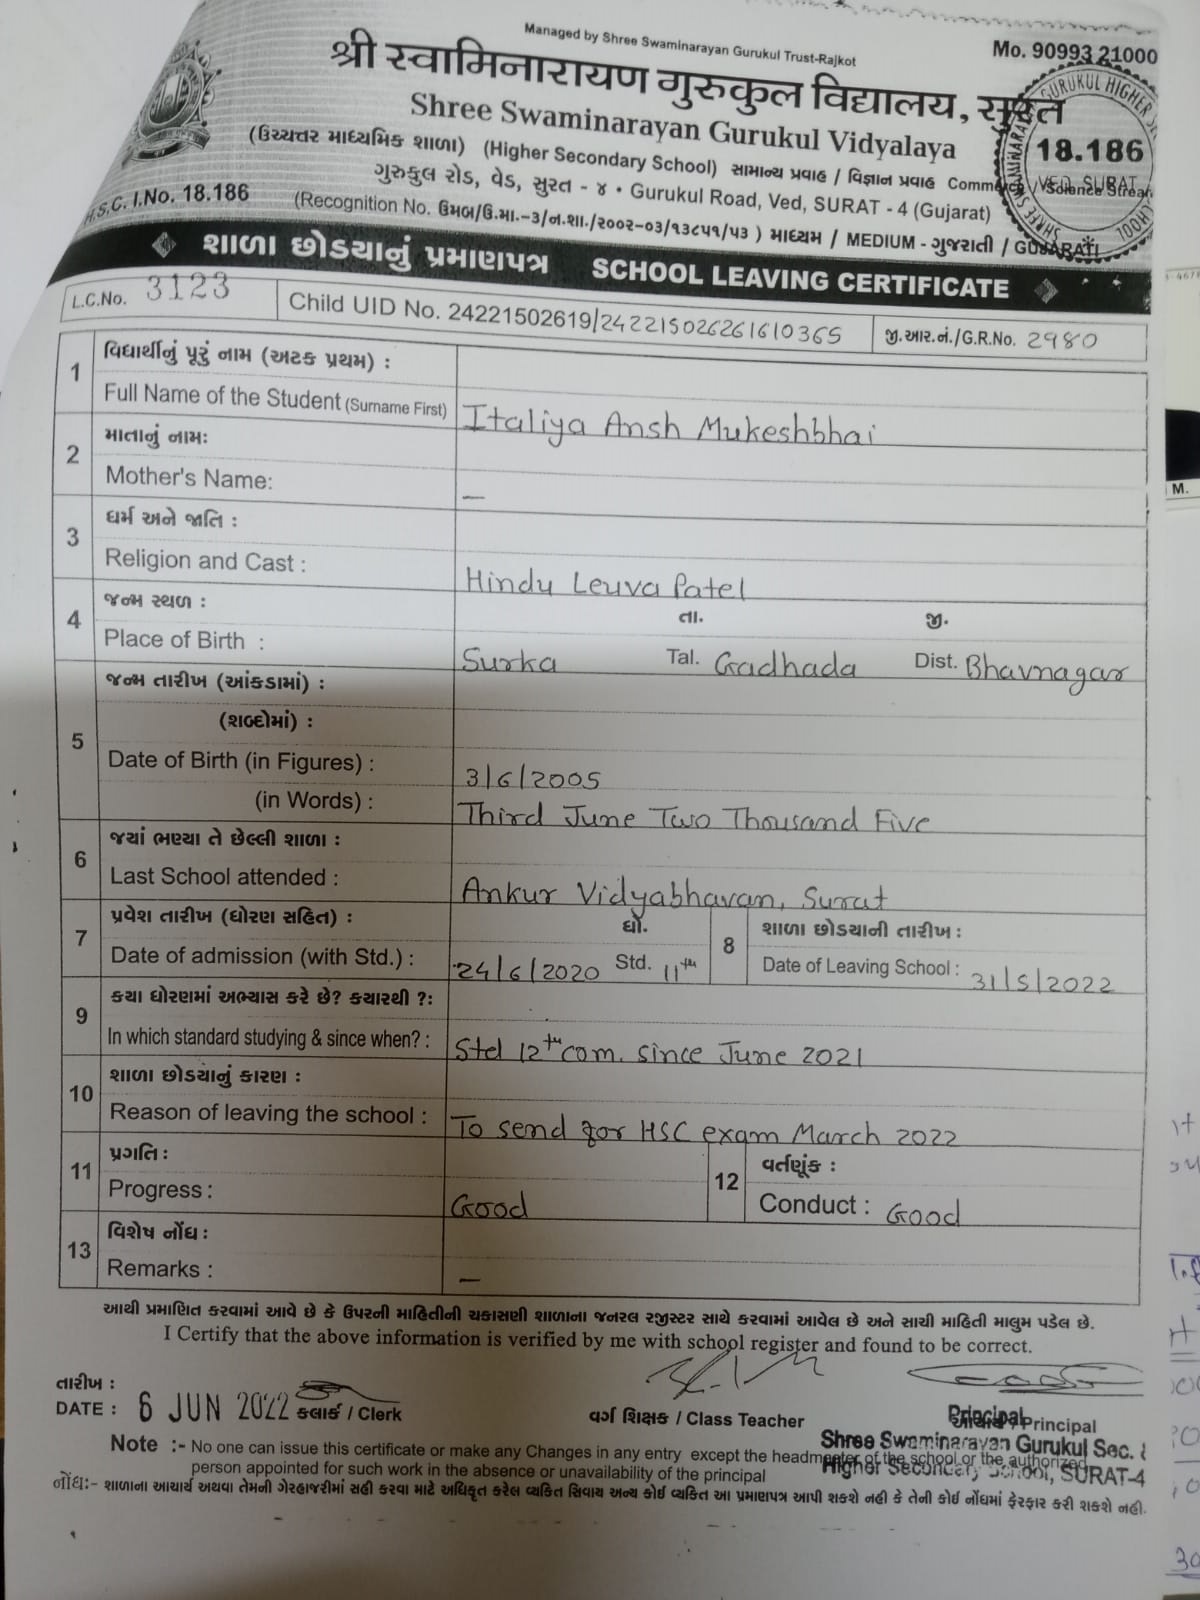 Managed by Shree Swaminarayan Gurukul Trust-Rajkot
Mo. 90993 21000
श्री स्वामिनारायण गुरुकुल विद्यालय, सुरत
Shree Swaminarayan Gurukul Vidyalaya
(ઉચ્ચત્તર માધ્યમિક શાળા) (Higher Secondary School) સામાન્ય પ્રવાહ / વિજ્ઞાન પ્રવાહ Commerce / Science Stream
18.186
VED, SURAT
ગુરુકુલ રોડ, વેડ, સુરત - ૪ • Gurukul Road, Ved, SURAT - 4 (Gujarat)
H.S.C. I.No. 18.186
(Recognition No. ઉમબ/ઉ.મા.-૩/ન.શા./૨૦૦૨-૦૩/૧૩૮૫૧/૫૩ ) માધ્યમ / MEDIUM - ગુજરાતી / GUJARATI
શાળા છોડયાનું પ્રમાણપત્ર SCHOOL LEAVING CERTIFICATE
L.C.No. 3123 Child UID No. 24221502619/242215026261610365 જી.આર.નં./G.R.No. 2980
1 વિદ્યાર્થીનું પૂરું નામ (અટક પ્રથમ) :
Full Name of the Student (Surname First) Italiya Ansh Mukeshbhai
2 માતાનું નામઃ
Mother's Name: —
3 ધર્મ અને જાતિ :
Religion and Cast : Hindu Leuva Patel
4 જન્મ સ્થળ : તા. જી.
Place of Birth : Surka Tal. Gadhada Dist. Bhavnagar
5 જન્મ તારીખ (આંકડામાં) :
(શબ્દોમાં) :
Date of Birth (in Figures) : 3/6/2005
(in Words) : Third June Two Thousand Five
6 જયાં ભણ્યા તે છેલ્લી શાળા :
Last School attended : Ankur Vidyabhavan, Surat
7 પ્રવેશ તારીખ (ધોરણ સહિત) : ધો. 8 શાળા છોડયાની તારીખ :
Date of admission (with Std.) : 24/6/2020 Std. 11th Date of Leaving School : 31/5/2022
9 કયા ધોરણમાં અભ્યાસ કરે છે? કયારથી ?:
In which standard studying & since when? : Std 12th com. since June 2021
10 શાળા છોડયાનું કારણ :
Reason of leaving the school : To send for HSC exam March 2022
11 પ્રગતિ : 12 વર્તણૂંક :
Progress : Good Conduct : Good
13 વિશેષ નોંધ :
Remarks : —
આથી પ્રમાણિત કરવામાં આવે છે કે ઉપરની માહિતીની ચકાસણી શાળાના જનરલ રજીસ્ટર સાથે કરવામાં આવેલ છે અને સાચી માહિતી માલુમ પડેલ છે.
I Certify that the above information is verified by me with school register and found to be correct.
તારીખ :
DATE : 6 JUN 2022 કલાર્ક / Clerk વર્ગ શિક્ષક / Class Teacher આચાર્ય / Principal
Principal
Shree Swaminarayan Gurukul Sec. &
Higher Secondary School, SURAT-4
Note :- No one can issue this certificate or make any Changes in any entry except the headmaster of the school or the authorized
person appointed for such work in the absence or unavailability of the principal
નોંધઃ- શાળાના આચાર્ય અથવા તેમની ગેરહાજરીમાં સહી કરવા માટે અધિકૃત કરેલ વ્યકિત સિવાય અન્ય કોઈ વ્યકિત આ પ્રમાણપત્ર આપી શકશે નહી કે તેની કોઈ નોંધમાં ફેરફાર કરી શકશે નહી.